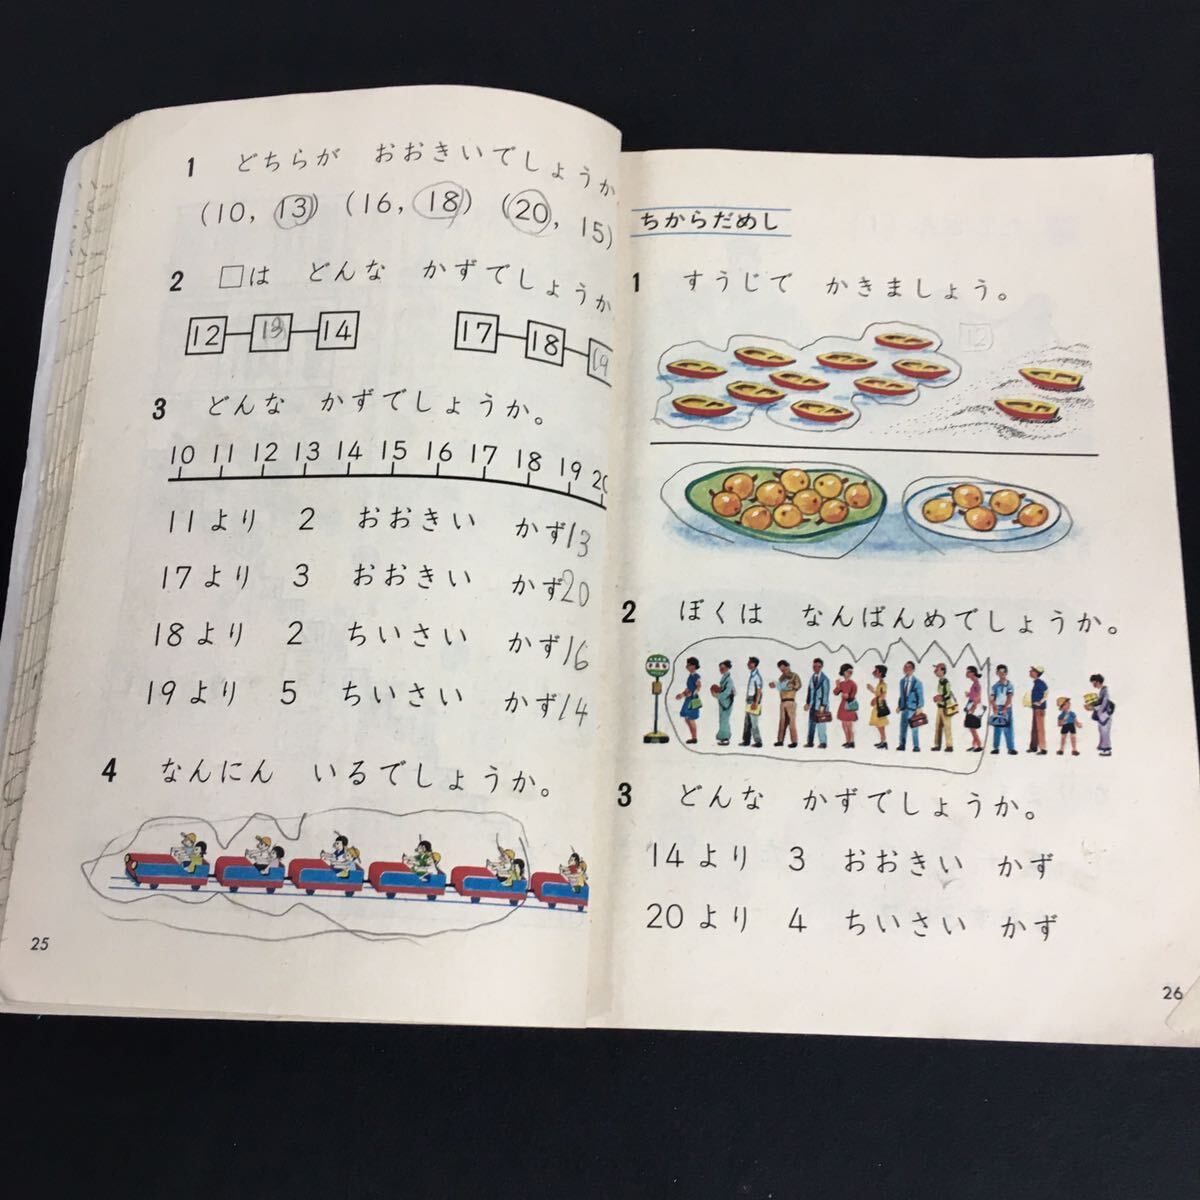 1 どちらが おおきいでしょうか
(10, 13) (16, 18) (20, 15)
2 □は どんな かずでしょうか
12 13 14 17 18 19
3 どんな かずでしょうか。
10 11 12 13 14 15 16 17 18 19 20
11より 2 おおきい かず13
17より 3 おおきい かず20
18より 2 ちいさい かず16
19より 5 ちいさい かず14
4 なんにん いるでしょうか。
25
ちからだめし
1 すうじで かきましょう。
12
2 ぼくは なんばんめでしょうか。
3 どんな かずでしょうか。
14より 3 おおきい かず
20より 4 ちいさい かず
26